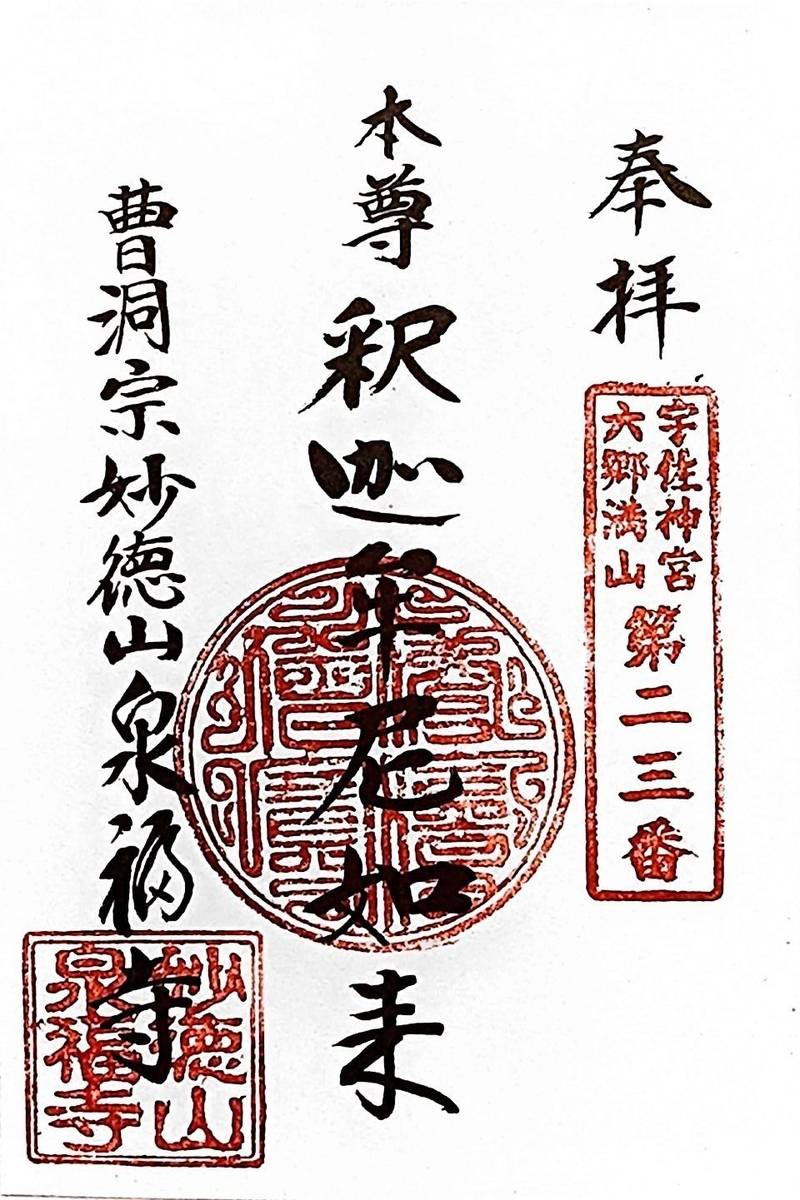 奉拝
宇佐神宮
六郷満山
第二三番
本尊 釈迦牟尼如来
曹洞宗妙徳山泉福寺
妙徳山
泉福寺